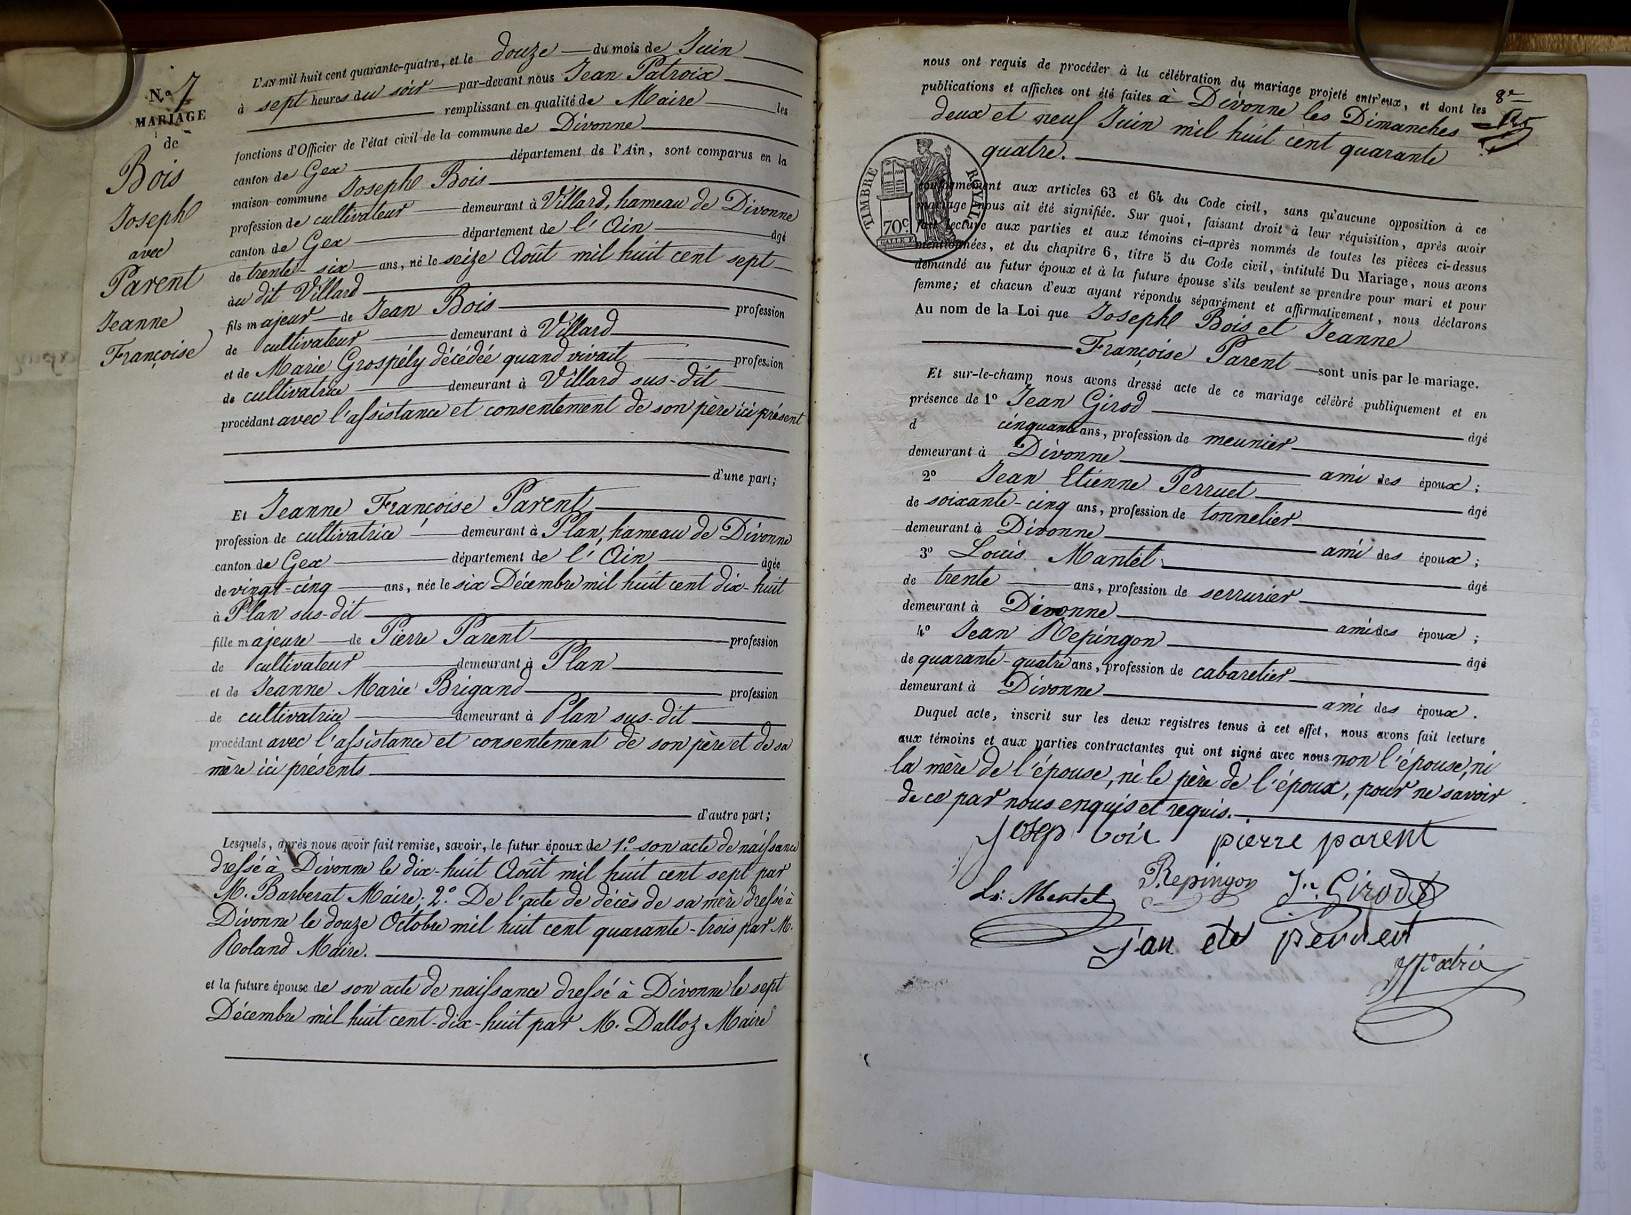 N.o 7
MARIAGE
de
Bois
Joseph
avec
Parent
Jeanne
Françoise
L'AN mil huit cent quarante-quatre, et le douze du mois de Juin
à sept heures du soir par-devant nous Jean Patroix
remplissant en qualité de Maire les
fonctions d'Officier de l'état civil de la commune de Divonne
canton de Gex département de l'Ain, sont comparus en la
maison commune Joseph Bois
profession de cultivateur demeurant à Villard, hameau de Divonne
canton de Gex département de l'Ain âgé
de trente-six ans, né le seize Août mil huit cent sept
au dit Villard
fils majeur de Jean Bois profession
de cultivateur demeurant à Villard
et de Marie Grospély décédée quand vivait profession
de cultivatrice demeurant à Villard sus-dit
procédant avec l'assistance et consentement de son père ici présent
d'une part;
Et Jeanne Françoise Parent
profession de cultivatrice demeurant à Plan, hameau de Divonne
canton de Gex département de l'Ain âgée
de vingt-cinq ans, née le six Décembre mil huit cent dix-huit
à Plan sus-dit
fille majeure de Pierre Parent profession
de cultivateur demeurant à Plan
et de Jeanne Marie Brigand profession
de cultivatrice demeurant à Plan sus-dit
procédant avec l'assistance et consentement de son père et de sa
mère ici présents
d'autre part;
Lesquels, après nous avoir fait remise, savoir, le futur époux de 1.o son acte de naissance
dressé à Divonne le dix-huit Août mil huit cent sept par
M. Barberat Maire; 2.o De l'acte de décès de sa mère dressé à
Divonne le douze Octobre mil huit cent quarante-trois par M.
Roland Maire.
et la future épouse de son acte de naissance dressé à Divonne le sept
Décembre mil huit cent-dix-huit par M. Dalloz Maire
nous ont requis de procéder à la célébration du mariage projeté entr'eux, et dont les
publications et affiches ont été faites à Divonne les Dimanches
deux et neuf Juin mil huit cent quarante
quatre.
8e
TIMBRE ROYAL
70c
conformément aux articles 63 et 64 du Code civil, sans qu'aucune opposition à ce
mariage nous ait été signifiée. Sur quoi, faisant droit à leur réquisition, après avoir
fait lecture aux parties et aux témoins ci-après nommés de toutes les pièces ci-dessus
mentionnées, et du chapitre 6, titre 5 du Code civil, intitulé Du Mariage, nous avons
demandé au futur époux et à la future épouse s'ils veulent se prendre pour mari et pour
femme; et chacun d'eux ayant répondu séparément et affirmativement, nous déclarons
Au nom de la Loi que Joseph Bois et Jeanne
Françoise Parent sont unis par le mariage.
Et sur-le-champ nous avons dressé acte de ce mariage célébré publiquement et en
présence de 1o Jean Girod âgé
d cinquante ans, profession de meunier
demeurant à Divonne ami des époux;
2o Jean Etienne Perruet âgé
de soixante-cinq ans, profession de tonnelier
demeurant à Divonne ami des époux;
3o Louis Mantel âgé
de trente ans, profession de serrurier
demeurant à Divonne ami des époux;
4o Jean Repingon âgé
de quarante-quatre ans, profession de cabaretier
demeurant à Divonne ami des époux.
Duquel acte, inscrit sur les deux registres tenus à cet effet, nous avons fait lecture
aux témoins et aux parties contractantes qui ont signé avec nous non l'épouse, ni
la mère de l'épouse, ni le père de l'époux, pour ne savoir
de ce par nous enquis et requis.
Josep bois pierre parent
Ls: Mantel Repingon Jn. Girod